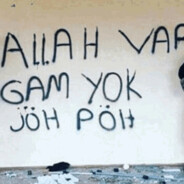 ALLAH VAR
GAM YOK
JÖH PÖH